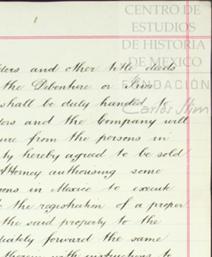 CENTRO DE
ESTUDIOS
DE HISTORIA
DE MEXICO
FUNDACIÓN
Carlos Slim
and other title deeds
the Debenture or
shall be duly handed to
and the Company will
from the persons in
hereby agreed to be sold
Attorney authorising some
in Mexico to execute
the registration of a proper
the said property to the
forward the same
with instructions to